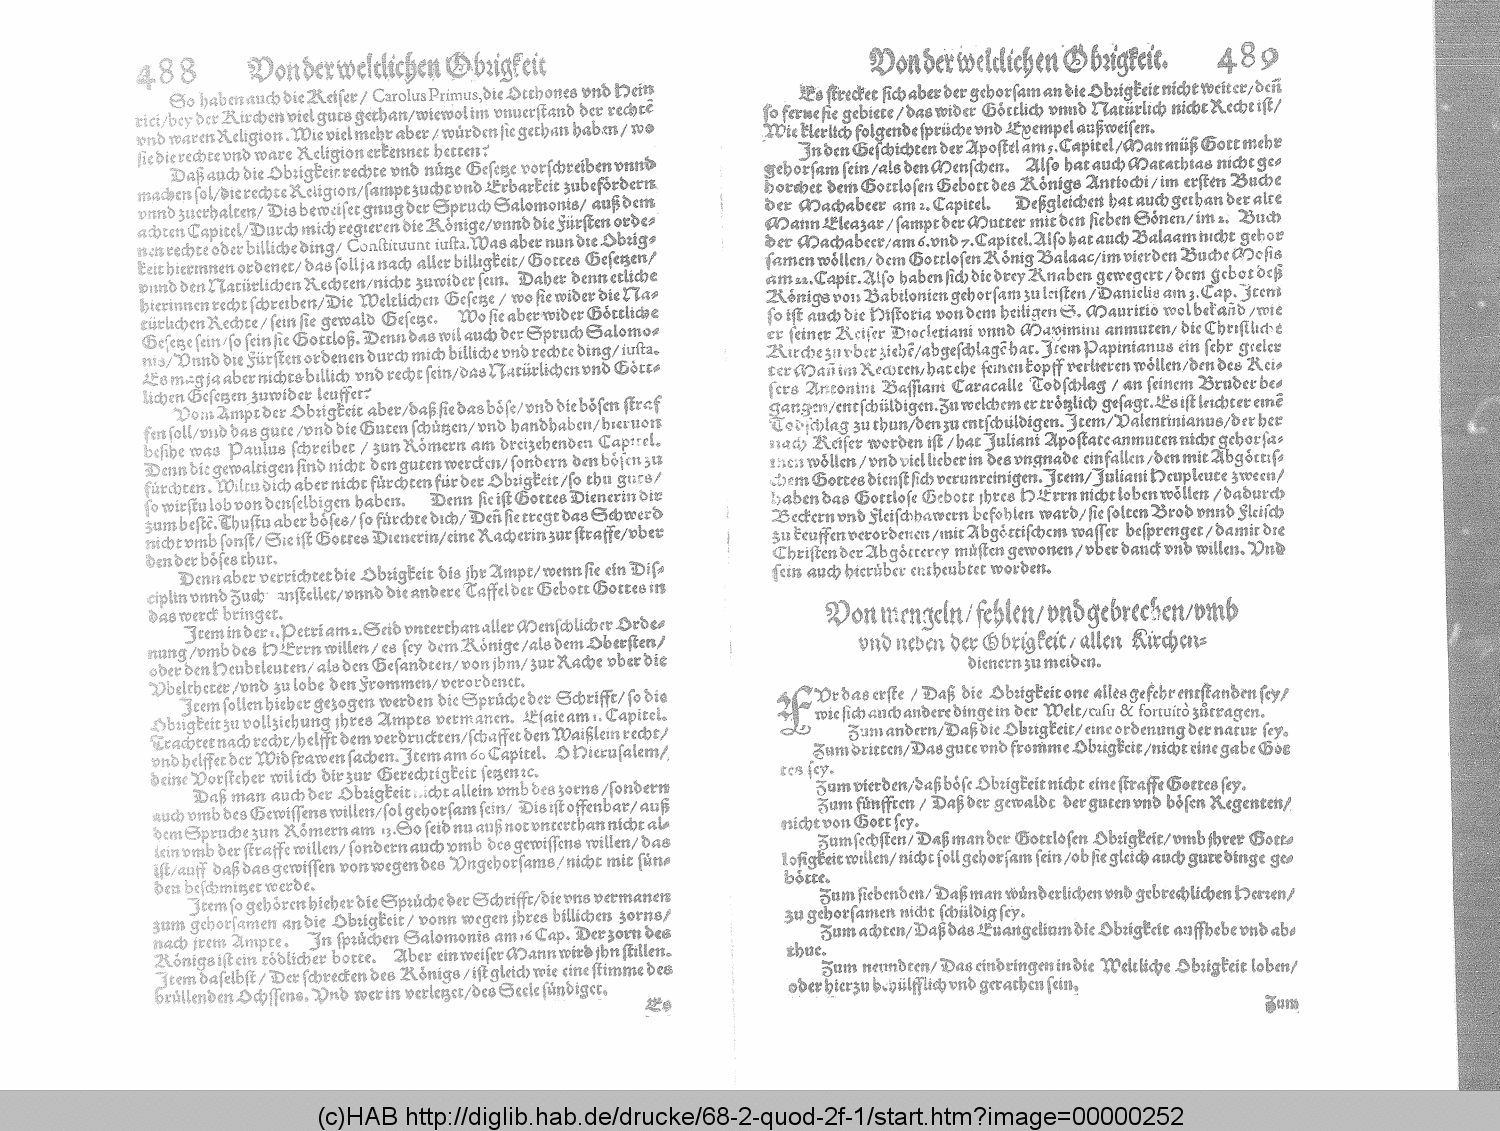 488 Von der weltlichen Obrigkeit
So haben auch die Keiser / Carolus Primus, die Otthones vnd Hein
rici/bey der Kirchen viel guts gethan/wiewol im vnuerstand der rechtē
vnd waren Religion. Wie viel mehr aber / würden sie gethan haben / wo
sie die rechte vnd ware Religion erkennet hetten?
Daß auch die Obrigkeit rechte vnd nütze Gesetze vorschreiben vnnd
machen sol/die rechte Religion/sampt zucht vnd Erbarkeit zubefördern
vnnd zuerhalten/ Dis beweiset gnug der Spruch Salomonis/ auß dem
achten Capitel/Durch mich regieren die Könige/vnnd die Fürsten orde-
nen rechte oder billiche ding/ Constituunt iusta. Was aber nun die Obrig-
keit hierinnen ordenet/ das soll ja nach aller billigkeit/ Gottes Gesetzen/
vnnd den Natürlichen Rechten/nicht zuwider sein. Daher denn etliche
hierinnen recht schreiben/Die Weltlichen Gesetze / wo sie wider die Na-
türlichen Rechte / sein sie gewald Gesetze. Wo sie aber wider Göttliche
Gesetze sein/so sein sie Gottloß. Denn das wil auch der Spruch Salomo-
nis/ Vnnd die Fürsten ordenen durch mich billiche vnd rechte ding/ iusta.
Es mag ja aber nichts billich vnd recht sein/das Natürlichen vnd Gött-
lichen Gesetzen zuwider leuffet?
Vom Ampt der Obrigkeit aber/daß sie das böse/vnd die bösen straf
fen soll/vnd das gute /vnd die Guten schützen/ vnd handhaben/hieruon
besihe was Paulus schreibet / zun Römern am dreizehenden Capitel.
Denn die gewaltigen sind nicht den guten wercken/ sondern den bösen zu
fürchten. Wiltu dich aber nicht fürchten für der Obrigkeit/so thu guts/
so wirstu lob von denselbigen haben. Denn sie ist Gottes Dienerin dir
zum bestē. Thustu aber böses/ so fürchte dich/ Deñ sie tregt das Schwerd
nicht vmb sonst/ Sie ist Gottes Dienerin/eine Racherin zur straffe/vber
den der böses thut.
Denn aber verrichtet die Obrigkeit dis jhr Ampt/wenn sie ein Dis-
ciplin vnnd Zuch anstellet/vnnd die andere Taffel der Gebott Gottes in
das werck bringet.
Item in der 1. Petri am 2. Seid vnterthan aller Menschlicher Orde-
nung /vmb des HErrn willen/ es sey dem Könige/als dem Obersten/
oder den Heubtleuten/ als den Gesandten/ von jhm/ zur Rache vber die
Vbeltheter /vnd zu lobe den Frommen/ verordenet.
Item sollen hieher gezogen werden die Sprüche der Schrifft/ so die
Obrigkeit zu vollziehung jhres Amptes vermanen. Esaie am 1. Capitel.
Trachtet nach recht/helfft dem verdruckten/schaffet den Waißlein recht/
vnd helffet der Widfrawen sachen. Item am 60 Capitel. O Hierusalem/
deine Vorsteher wil ich dir zur Gerechtigkeit setzen ꝛc.
Daß man auch der Obrigkeit nicht allein vmb des zorns /sondern
auch vmb des Gewissens willen/sol gehorsam sein/ Dis ist offenbar/ auß
dem Spruche zun Römern am 13. So seid nu auß not vnterthan nicht al-
lein vmb der straffe willen/ sondern auch vmb des gewissens willen/ das
ist/auff daß das gewissen von wegen des Vngehorsams/ nicht mit sün-
den beschmitzet werde.
Item so gehören hieher die Sprüche der Schrifft/die vns vermanen
zum gehorsamen an die Obrigkeit / vonn wegen jhres billichen zorns/
nach jrem Ampte. In sprüchen Salomonis am 16 Cap. Der zorn des
Königs ist ein tödlicher botte. Aber ein weiser Mann wird jhn stillen.
Item daselbst / Der schrecken des Königs / ist gleich wie eine stimme des
brüllenden Ochssens. Vnd wer in verletzet/des Seele sündiget.
Es
Von der weltlichen Obrigkeit. 489
Es strecket sich aber der gehorsam an die Obrigkeit nicht weiter/deñ
so ferne sie gebiete / das wider Göttlich vnnd Natürlich nicht Recht ist/
Wie klerlich folgende sprüche vnd Exempel außweisen.
In den Geschichten der Apostel am 5. Capitel/Man müß Gott mehr
gehorsam sein/als den Menschen. Also hat auch Matathias nicht ge-
horchet dem Gottlosen Gebott des Königs Antiochi/im ersten Buche
der Machabeer am 2. Capitel. Deßgleichen hat auch gethan der alte
Mann Eleazar / sampt der Mutter mit den sieben Sönen/ im 2. Buch
der Machabeer/am 6. vnd 7. Capitel. Also hat auch Balaam nicht gehor
samen wöllen/ dem Gottlosen König Balaac/im vierden Buche Mosis
am 22. Capit. Also haben sich die drey Knaben gewegert / dem gebot deß
Königs von Babilonien gehorsam zu leisten / Danielis am 3. Cap. Item
so ist auch die Historia von dem heiligen S. Mauritio wol bekañd /wie
er seiner Keiser Diocletiani vnnd Maximini anmuten/ die Christliche
Kirche zu vberziehē/abgeschlagē hat. Item Papinianus ein sehr gleler
ter Mañ im Rechten/hat ehe seinen kopff verlieren wöllen/den des Kei-
sers Antonini Bassiani Caracalle Todschlag / an seinem Bruder be-
gangen/entschüldigen. Zu welchem er trötzlich gesagt. Es ist leichter einē
Todschlag zu thun/den zu entschüldigen. Item/Valentinianus/der her
nach Keiser worden ist / hat Juliani Apostate anmuten nicht gehorsa-
men wöllen / vnd viel lieber in des vngnade einfallen/den mit Abgöttis-
chem Gottes dienst sich verunreinigen. Item/Juliani Heupleute zween/
haben das Gottlose Gebott jhres HErrn nicht loben wöllen / dadurch
Beckern vnd Fleischhawern befohlen ward/sie solten Brod vnnd Fleisch
zu keuffen verordenen/mit Abgöttischem wasser besprenget/damit die
Christen der Abgötterey müsten gewonen/vber danck vnd willen. Vnd
sein auch hierüber entheubtet worden.
Von mengeln / fehlen / vnd gebrechen / vmb
vnd neben der Obrigkeit / allen Kirchen-
dienern zu meiden.
FVr das erste / Daß die Obrigkeit one alles gefehr entstanden sey/
wie sich auch andere dinge in der Welt/casu & fortuitò zůtragen.
Zum andern/Daß die Obrigkeit/eine ordenung der natur sey.
Zum dritten/Das gute vnd fromme Obrigkeit/nicht eine gabe Got
tes sey.
Zum vierden/daß böse Obrigkeit nicht eine straffe Gottes sey.
Zum fünfften / Daß der gewaldt der guten vnd bösen Regenten/
nicht von Gott sey.
Zum sechsten/Daß man der Gottlosen Obrigkeit/vmb jhrer Gott-
losigkeit willen/ nicht soll gehorsam sein /ob sie gleich auch gute dinge ge-
bötte.
Zum siebenden/ Daß man wünderlichen vnd gebrechlichen Herren/
zu gehorsamen nicht schüldig sey.
Zum achten/Daß das Euangelium die Obrigkeit auffhebe vnd ab-
thue.
Zum neundten/ Das eindringen in die Weltliche Obrigkeit loben/
oder hierzu behülfflich vnd gerathen sein.
Zum
(c)HAB http://diglib.hab.de/drucke/68-2-quod-2f-1/start.htm?image=00000252